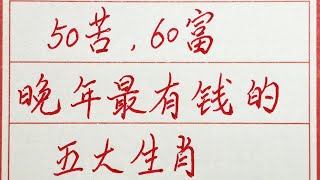 50苦，60富
晚年最有钱的
五大生肖